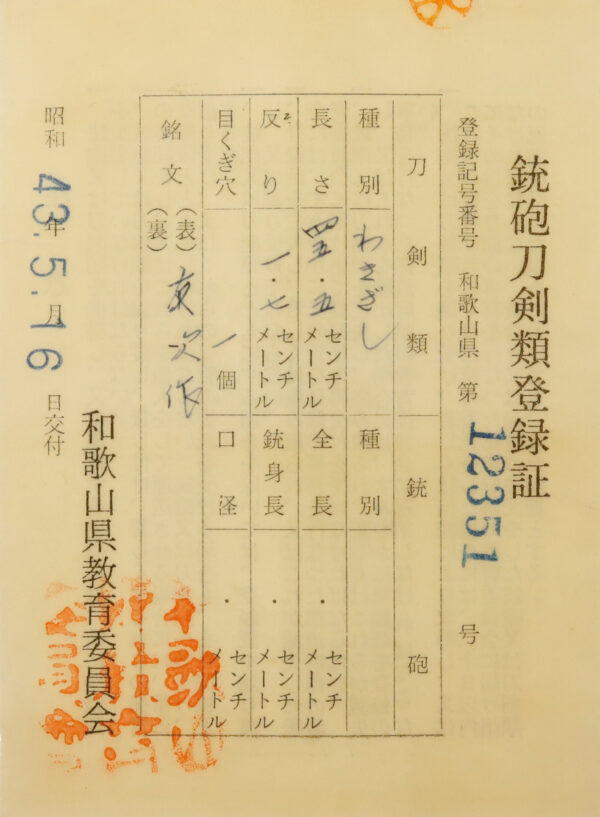 銃砲刀剣類登録証
登録記号番号 和歌山県 第 12351 号
刀剣類 銃砲
種別 わきざし 種別
長さ 四五・五 センチメートル 全長 ・ センチメートル
反り 一・七 センチメートル 銃身長 ・ センチメートル
目くぎ穴 一個 口径 ・ センチメートル
銘文 (表) 次作
(裏)
昭和 43年 5月 16日交付
和歌山県教育委員会